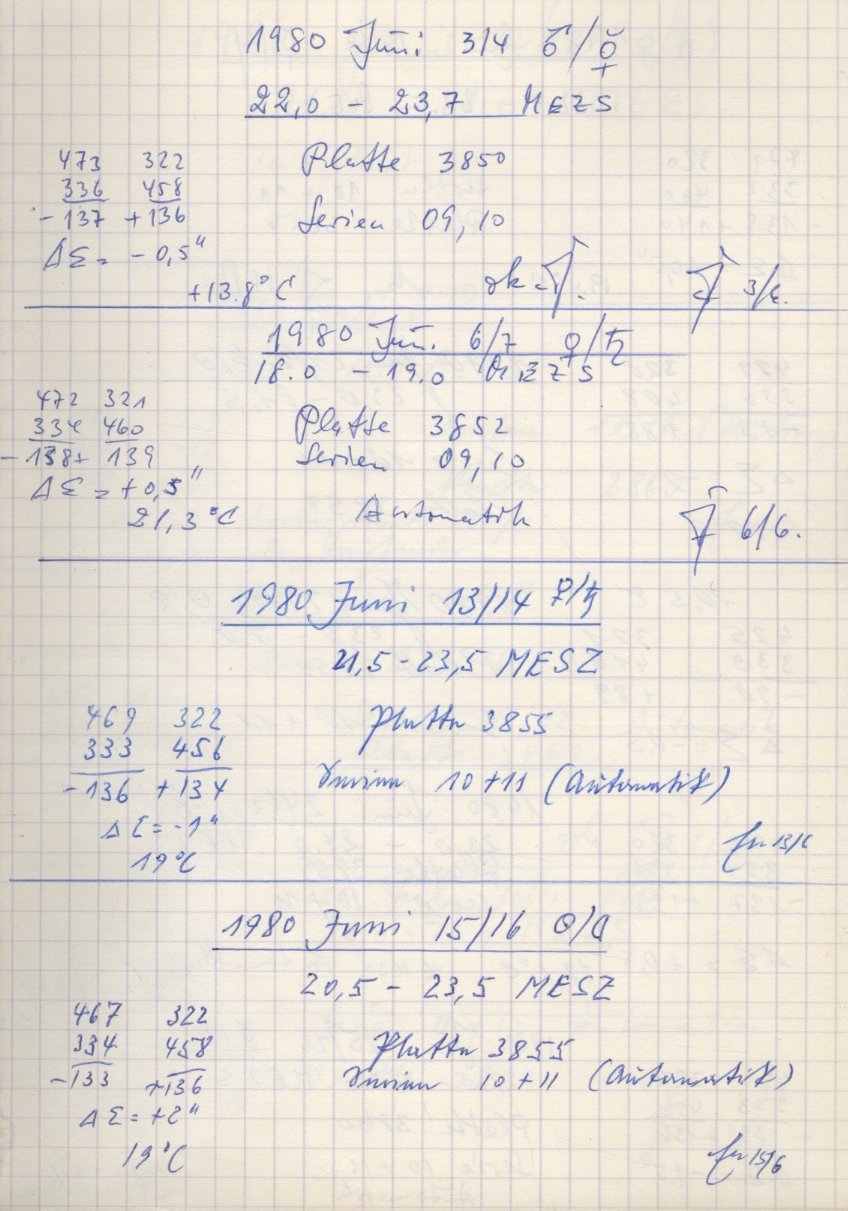 1980 Juni 3/4 ♂/☿
22,0 - 23,7 MEZS
473 322 Platte 3850
336 458
-137 +136 Serien 09, 10
ΔΣ = -0,5"
+13.8°C ok 3/6.
1980 Juni 6/7 ♀/♄
18.0 - 19.0 MEZS
472 321
334 460 Platte 3852
-138 + 139 Serien 09, 10
ΔΣ = +0,5"
21,3°C Automatik 6/6.
1980 Juni 13/14 ♀/♄
21,5 - 23,5 MESZ
469 322 Platte 3855
333 456
-136 +134 Serien 10+11 (Automatik)
ΔΣ = -1"
19°C 13/6
1980 Juni 15/16 ☉/☾
20,5 - 23,5 MESZ
467 322
334 458 Platte 3855
-133 +136 Serien 10+11 (Automatik)
ΔΣ = +2"
19°C 15/6